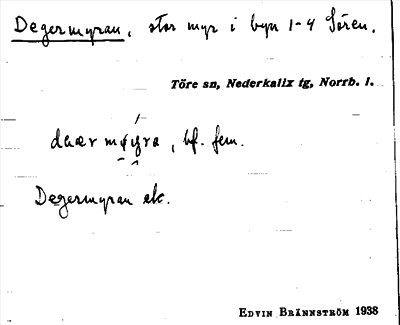 Degermyran, stor myr i byn 1-4 Sören.
Töre sn, Nederkalix tg, Norrb. l.
bf. fem.
Degermyran etc.
EDVIN BRÄNNSTRÖM 1938